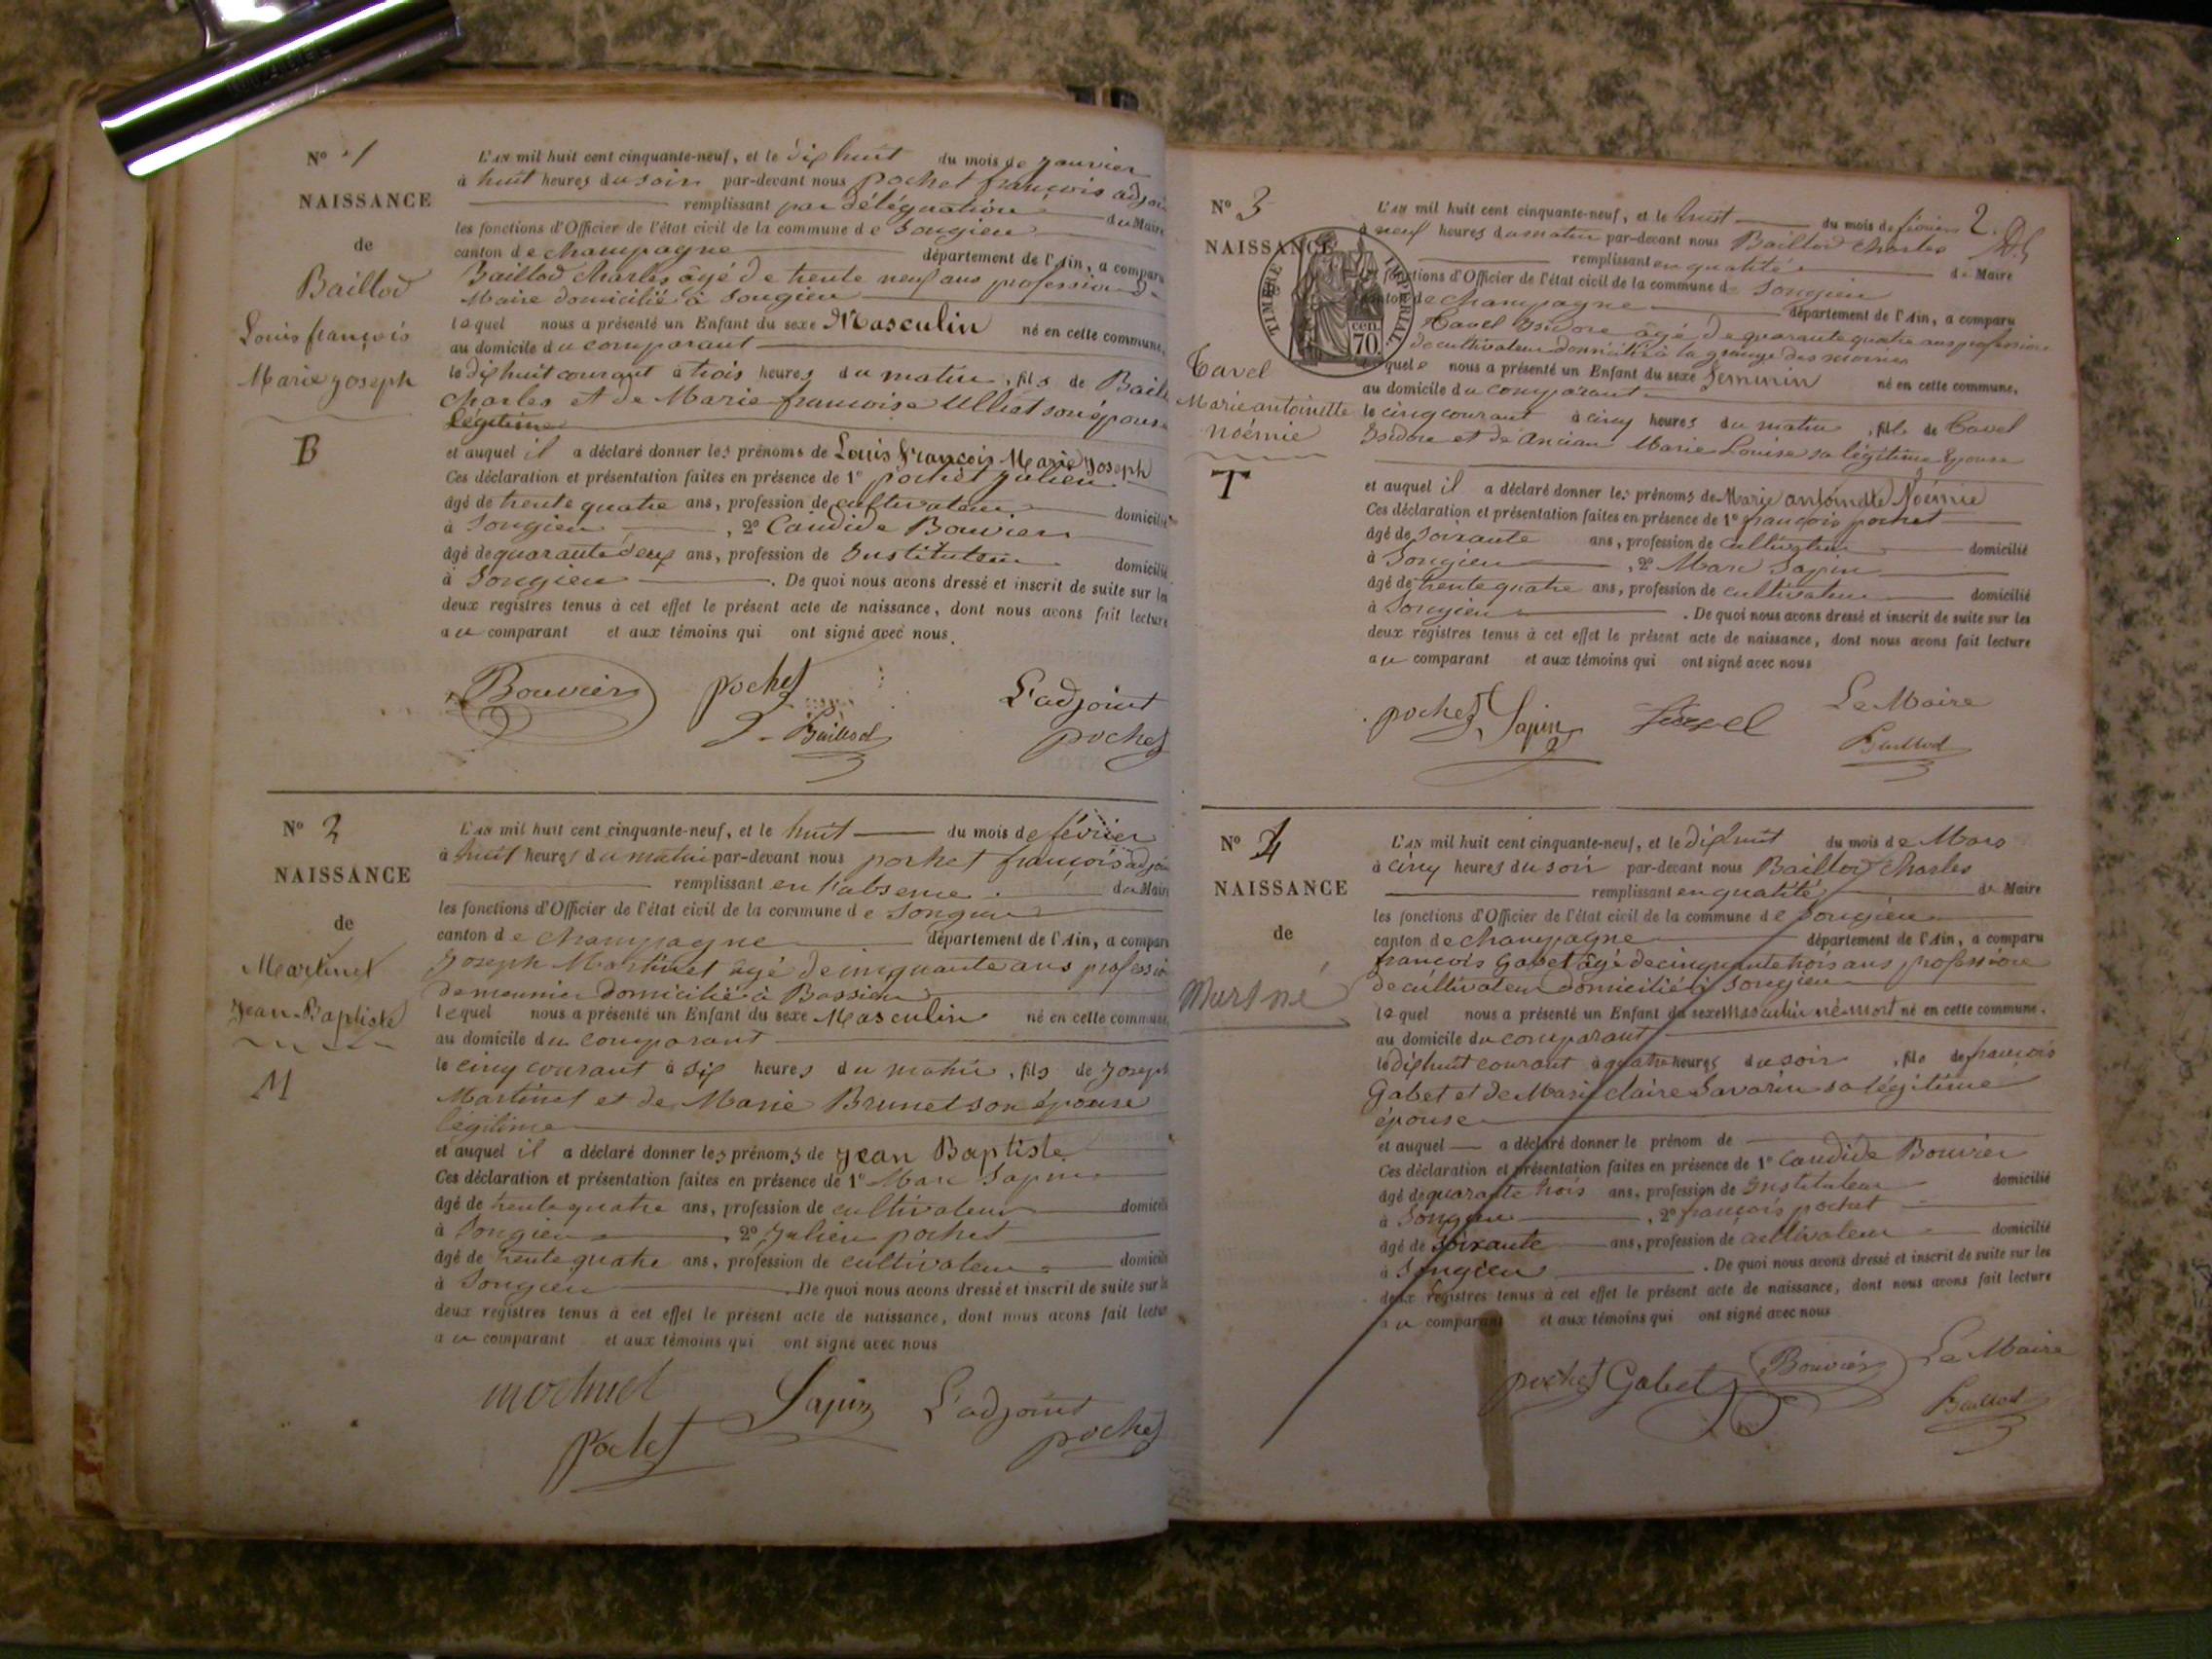 N° 1
NAISSANCE
de
Baillod
Louis françois
Marie joseph
B
L'AN mil huit cent cinquante-neuf, et le dix huit du mois de janvier
à huit heures du soir par-devant nous pochet françois adjoi
remplissant par délégation du Maire
les fonctions d'Officier de l'état civil de la commune de Songieu
canton de champagne département de l'Ain, a comparu
Baillod Charles âgé de trente neuf ans profession de
Maire domicilié à Songieu
lequel nous a présenté un Enfant du sexe Masculin né en cette commune,
au domicile du comparant
le dix huit courant à trois heures du matin, fils de Baill
Charles et de Marie françoise Ulliet son épouse
légitime
et auquel il a déclaré donner les prénoms de Louis François Marie Joseph
Ces déclaration et présentation faites en présence de 1° pochet julien
âgé de trente quatre ans, profession de cultivateur domicilié
à Songieu, 2° Candide Bouvier
âgé de quarante deux ans, profession de Instituteur domicilié
à Songieu. De quoi nous avons dressé et inscrit de suite sur les
deux registres tenus à cet effet le présent acte de naissance, dont nous avons fait lecture
au comparant et aux témoins qui ont signé avec nous.
Bouvier pochet L'adjoint
Baillod pochet
N° 2
NAISSANCE
de
Martinet
Jean-Baptiste
M
L'AN mil huit cent cinquante-neuf, et le huit du mois de février
à huit heures du matin par-devant nous pochet françois adjoi
remplissant en l'absence du Maire
les fonctions d'Officier de l'état civil de la commune de Songieu
canton de champagne département de l'Ain, a comparu
Joseph Martinet âgé de cinquante ans profession
de meunier domicilié à Bassieu
lequel nous a présenté un Enfant du sexe Masculin né en cette commune,
au domicile du comparant
le cinq courant à six heures du matin, fils de Joseph
Martinet et de Marie Brunet son épouse
légitime
et auquel il a déclaré donner les prénoms de jean Baptiste
Ces déclaration et présentation faites en présence de 1° Marc Sapin
âgé de trente quatre ans, profession de cultivateur domicilié
à Songieu, 2° Julien pochet
âgé de trente quatre ans, profession de cultivateur domicilié
à Songieu. De quoi nous avons dressé et inscrit de suite sur les
deux registres tenus à cet effet le présent acte de naissance, dont nous avons fait lecture
au comparant et aux témoins qui ont signé avec nous
Sapin L'adjoint
pochet pochet
2
N° 3
NAISSANCE
TIMBRE IMPERIAL
70 cen
Tavel
Marie antoinette
noémie
T
L'AN mil huit cent cinquante-neuf, et le huit du mois de février
à neuf heures du matin par-devant nous Baillod Charles
remplissant en qualité de Maire
les fonctions d'Officier de l'état civil de la commune de Songieu
canton de champagne département de l'Ain, a comparu
Tavel Isidore âgé de quarante quatre ans profession
de cultivateur domicilié à la grange des moines
lequel nous a présenté un Enfant du sexe feminin né en cette commune,
au domicile du comparant
le cinq courant à cinq heures du matin, fille de Tavel
Isidore et de Ancian Marie Louise sa légitime épouse
et auquel il a déclaré donner les prénoms de Marie antoinette Noémie
Ces déclaration et présentation faites en présence de 1° françois pochet
âgé de soixante ans, profession de cultivateur domicilié
à Songieu, 2° Marc Sapin
âgé de trente quatre ans, profession de cultivateur domicilié
à Songieu. De quoi nous avons dressé et inscrit de suite sur les
deux registres tenus à cet effet le présent acte de naissance, dont nous avons fait lecture
au comparant et aux témoins qui ont signé avec nous
pochet Sapin Tavel Le Maire
Baillod
N° 4
NAISSANCE
de
Mort né
L'AN mil huit cent cinquante-neuf, et le dix huit du mois de Mars
à cinq heures du soir par-devant nous Baillod Charles
remplissant en qualité de Maire
les fonctions d'Officier de l'état civil de la commune de Songieu
canton de champagne département de l'Ain, a comparu
françois Gabet âgé de cinquante trois ans profession
de cultivateur domicilié à Songieu
lequel nous a présenté un Enfant du sexe masculin né mort né en cette commune.
au domicile du comparant
le dix huit courant à quatre heures du soir, fils de françois
Gabet et de Marie claire Savarin sa légitime
épouse
et auquel a déclaré donner le prénom de
Ces déclaration et présentation faites en présence de 1° Candide Bouvier
âgé de quarante trois ans, profession de Instituteur domicilié
à Songieu, 2° françois pochet
âgé de soixante ans, profession de cultivateur domicilié
à Songieu. De quoi nous avons dressé et inscrit de suite sur les
deux registres tenus à cet effet le présent acte de naissance, dont nous avons fait lecture
au comparant et aux témoins qui ont signé avec nous
pochet Gabet Bouvier Le Maire
Baillod